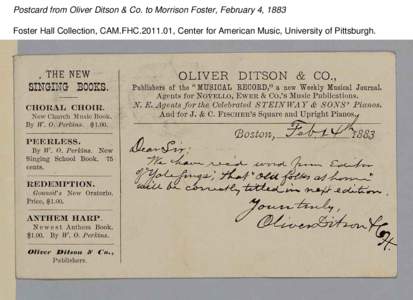 Postcard from Oliver Ditson & Co. to Morrison Foster, February 4, 1883
Foster Hall Collection, CAM.FHC.2011.01, Center for American Music, University of Pittsburgh.
THE NEW
SINGING BOOKS.
CHORAL CHOIR.
New Church Music Book.
By W. O. Perkins. $1.00.
PEERLESS.
By W. O. Perkins. New
Singing School Book. 75
cents.
REDEMPTION.
Gounod's New Oratorio.
Price, $1.00.
ANTHEM HARP.
Newest Anthem Book.
$1.00. By W. O. Perkins.
Oliver Ditson & Co.,
Publishers.
OLIVER DITSON & CO.,
Publishers of the "MUSICAL RECORD," a new Weekly Musical Journal.
Agents for NOVELLO, EWER & CO.'S Music Publications.
N. E. Agents for the Celebrated STEINWAY & SONS' Pianos.
And for J. & C. FISCHER'S Square and Upright Pianos.
Boston, Feb 14th 1883
Dear Sir:
We have rec'd word from Editor
of Yale songs, that "Old folks at home"
will be correctly titled in next edition.
Yours truly,
Oliver Ditson & Co